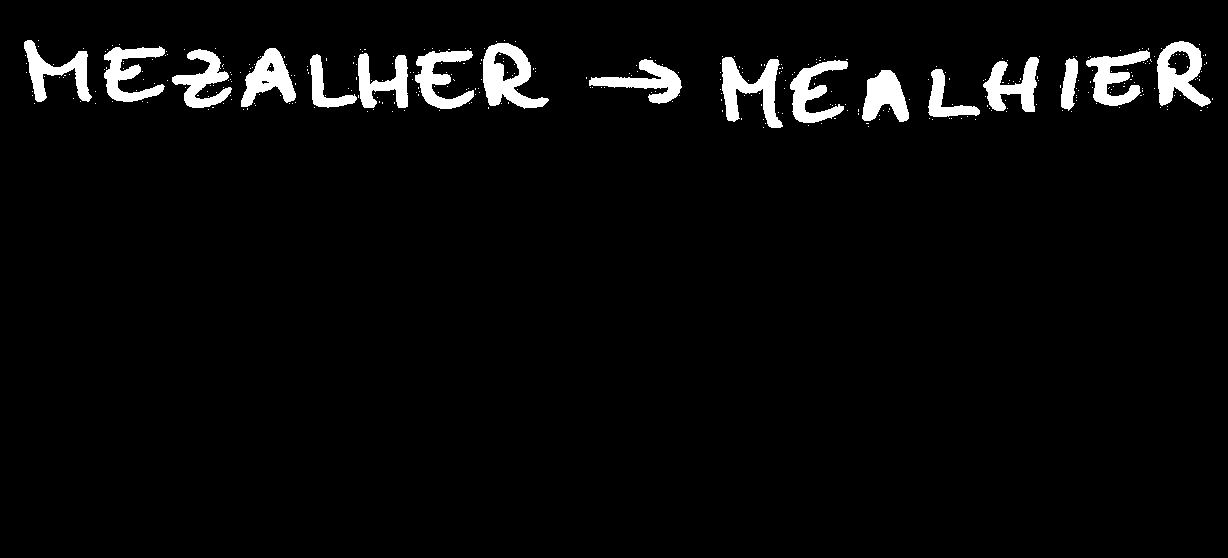 MEZALHER → MEALHIER